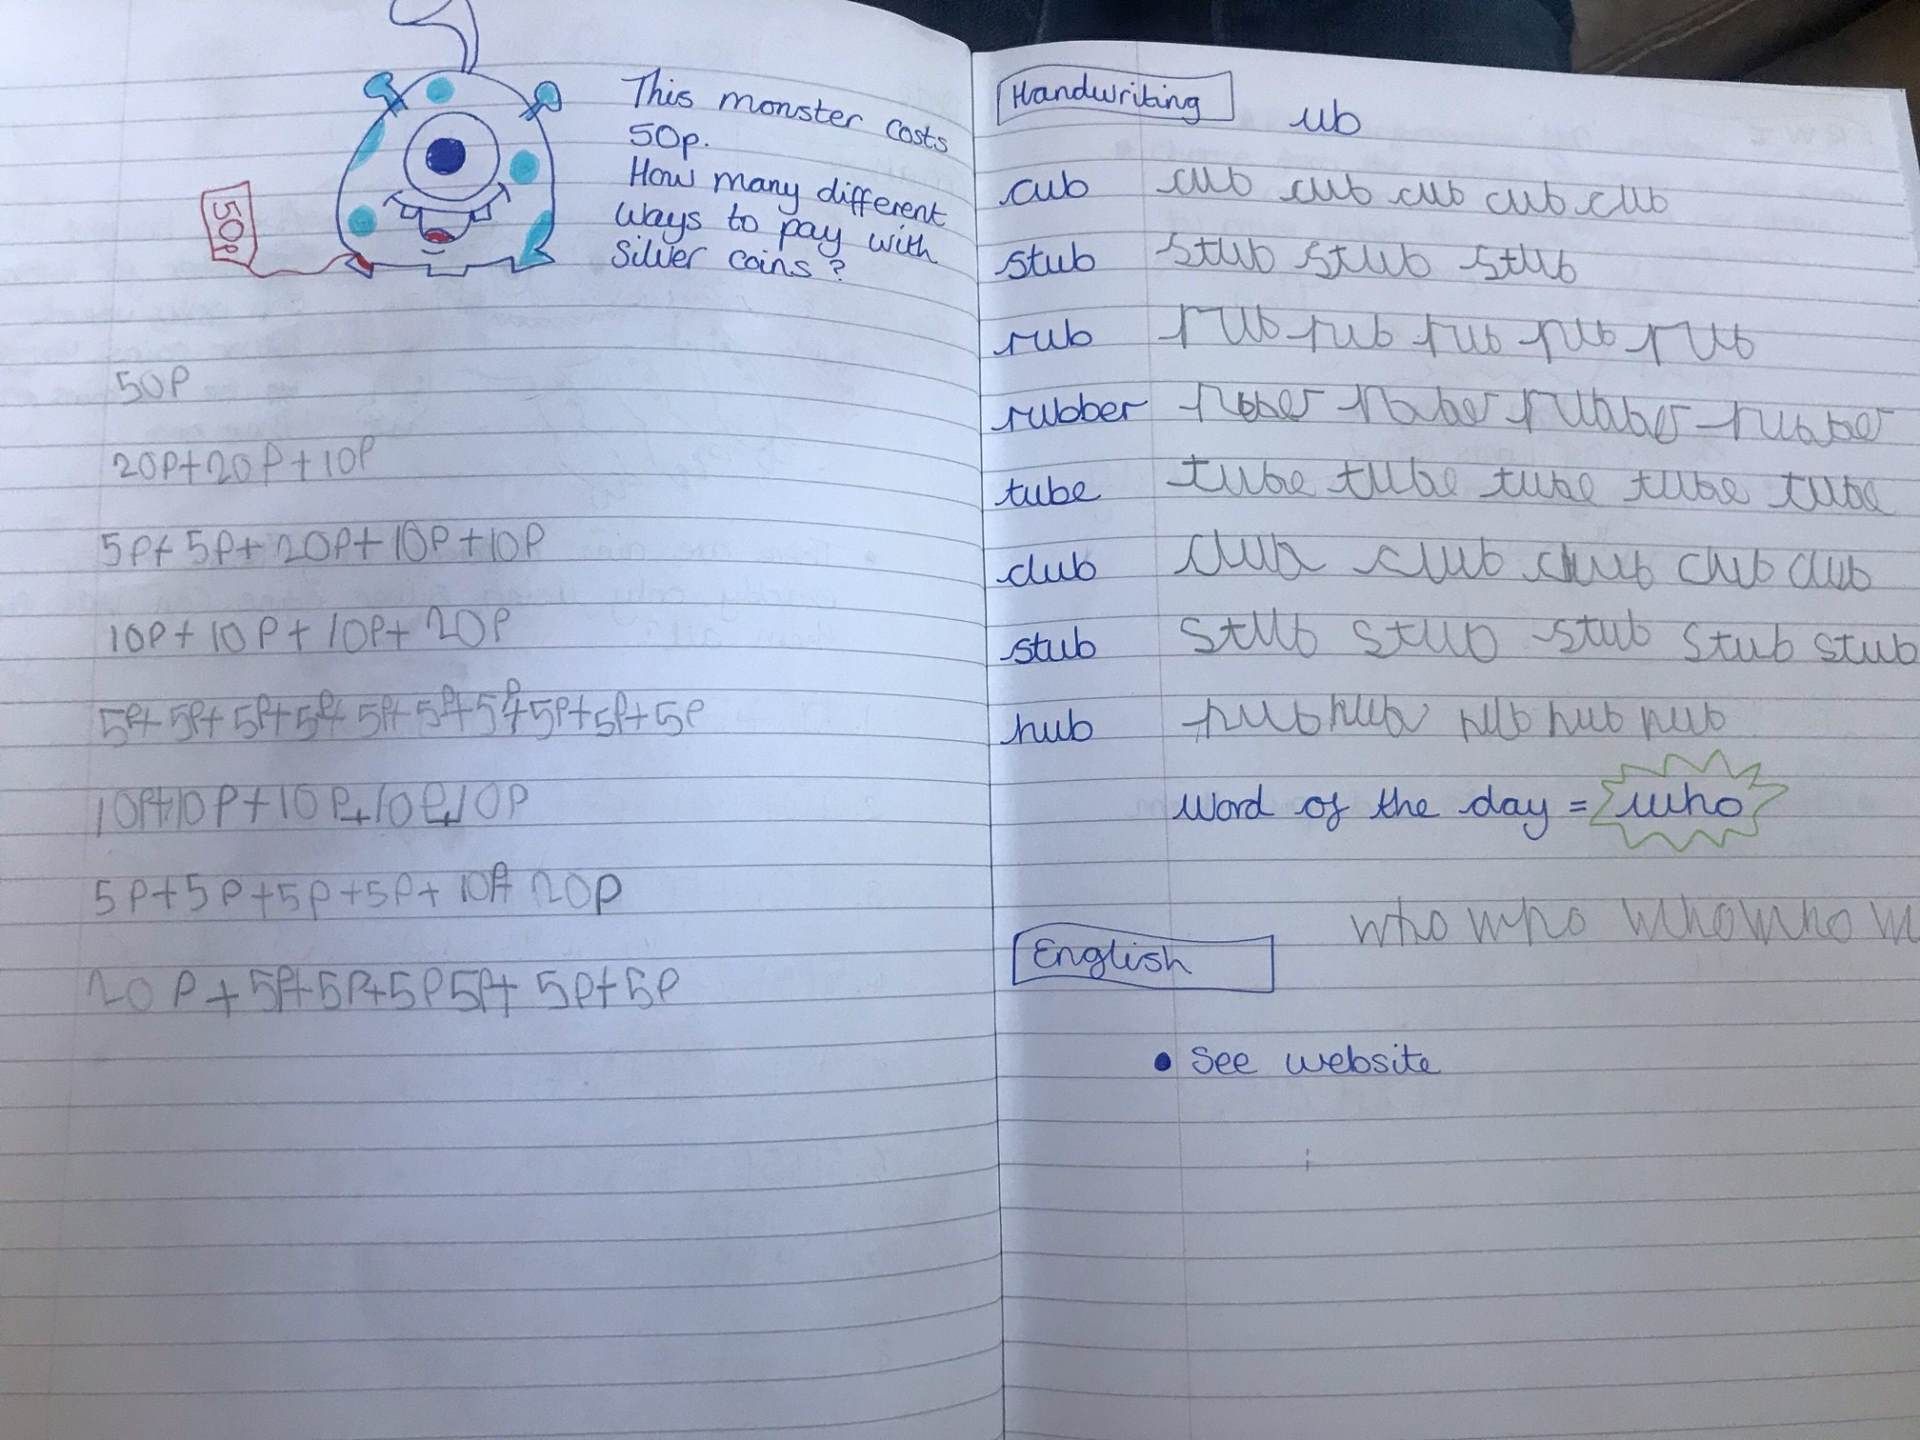 This monster costs
50p.
How many different
ways to pay with
silver coins?
50p
50P
20P+20P+10P
5P+5P+20P+10P+10P
10P+10P+10P+20P
5P+5P+5P+5P+5P+5P+5P+5P+5P+5P
10P+10P+10P+10P+10P
5P+5P+5P+5P+10P+20P
20P+5P+5P+5P5P+5P+5P
Handwriting
ub
cub cub cub cub cub cub
stub stub stub stub
rub rub rub rub rub rub
rubber rubber
tube tube tube tube tube tube
club club club club club club
stub stub stub stub stub stub
hub hub hub hub hub hub
Word of the day = who
who who who who w
English
• See website